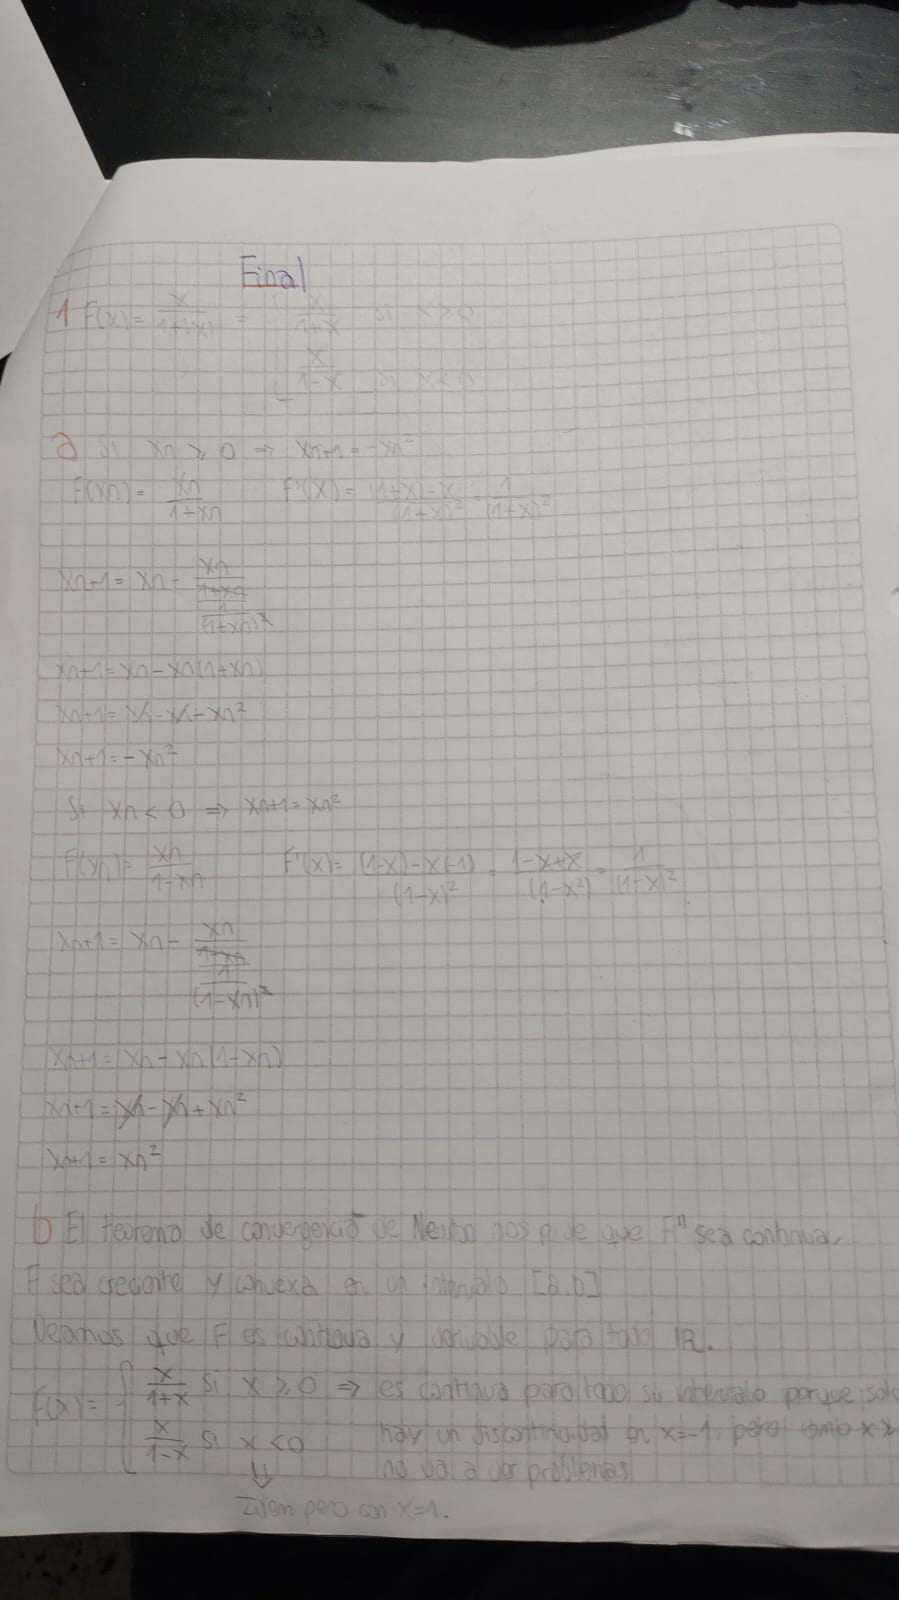 Final
1 F(x) = x/(1+|x|) = { x/(1+x) si x ≥ 0
x/(1-x) si x < 0
a Si xn ≥ 0 => xn+1 = -xn²
F(xn) = xn/(1+xn) F'(x) = ((1+x)-x)/(1+x)² = 1/(1+x)²
xn+1 = xn - (xn/(1+xn))/(1/(1+xn)²)
xn+1 = xn - xn(1+xn)
xn+1 = xn - xn - xn²
xn+1 = -xn²
Si xn < 0 => xn+1 = xn²
F(xn) = xn/(1-xn) F'(x) = ((1-x)-x(-1))/(1-x)² = (1-x+x)/(1-x²) = 1/(1-x)²
xn+1 = xn - (xn/(1-xn))/(1/(1-xn)²)
xn+1 = xn - xn(1-xn)
xn+1 = xn - xn + xn²
xn+1 = xn²
b El teorema de convergencia de Newton nos pide que F'' sea continua,
F sea creciente y convexa en un intervalo [a,b]
Veamos que F es continua y derivable para todo IR.
F(x) = { x/(1+x) si x ≥ 0 => es continua para todo su intervalo porque solo
x/(1-x) si x < 0 hay un discontinuidad en x=-1, pero como x ≥
no va a ver problemas
Idem pero con x=1.